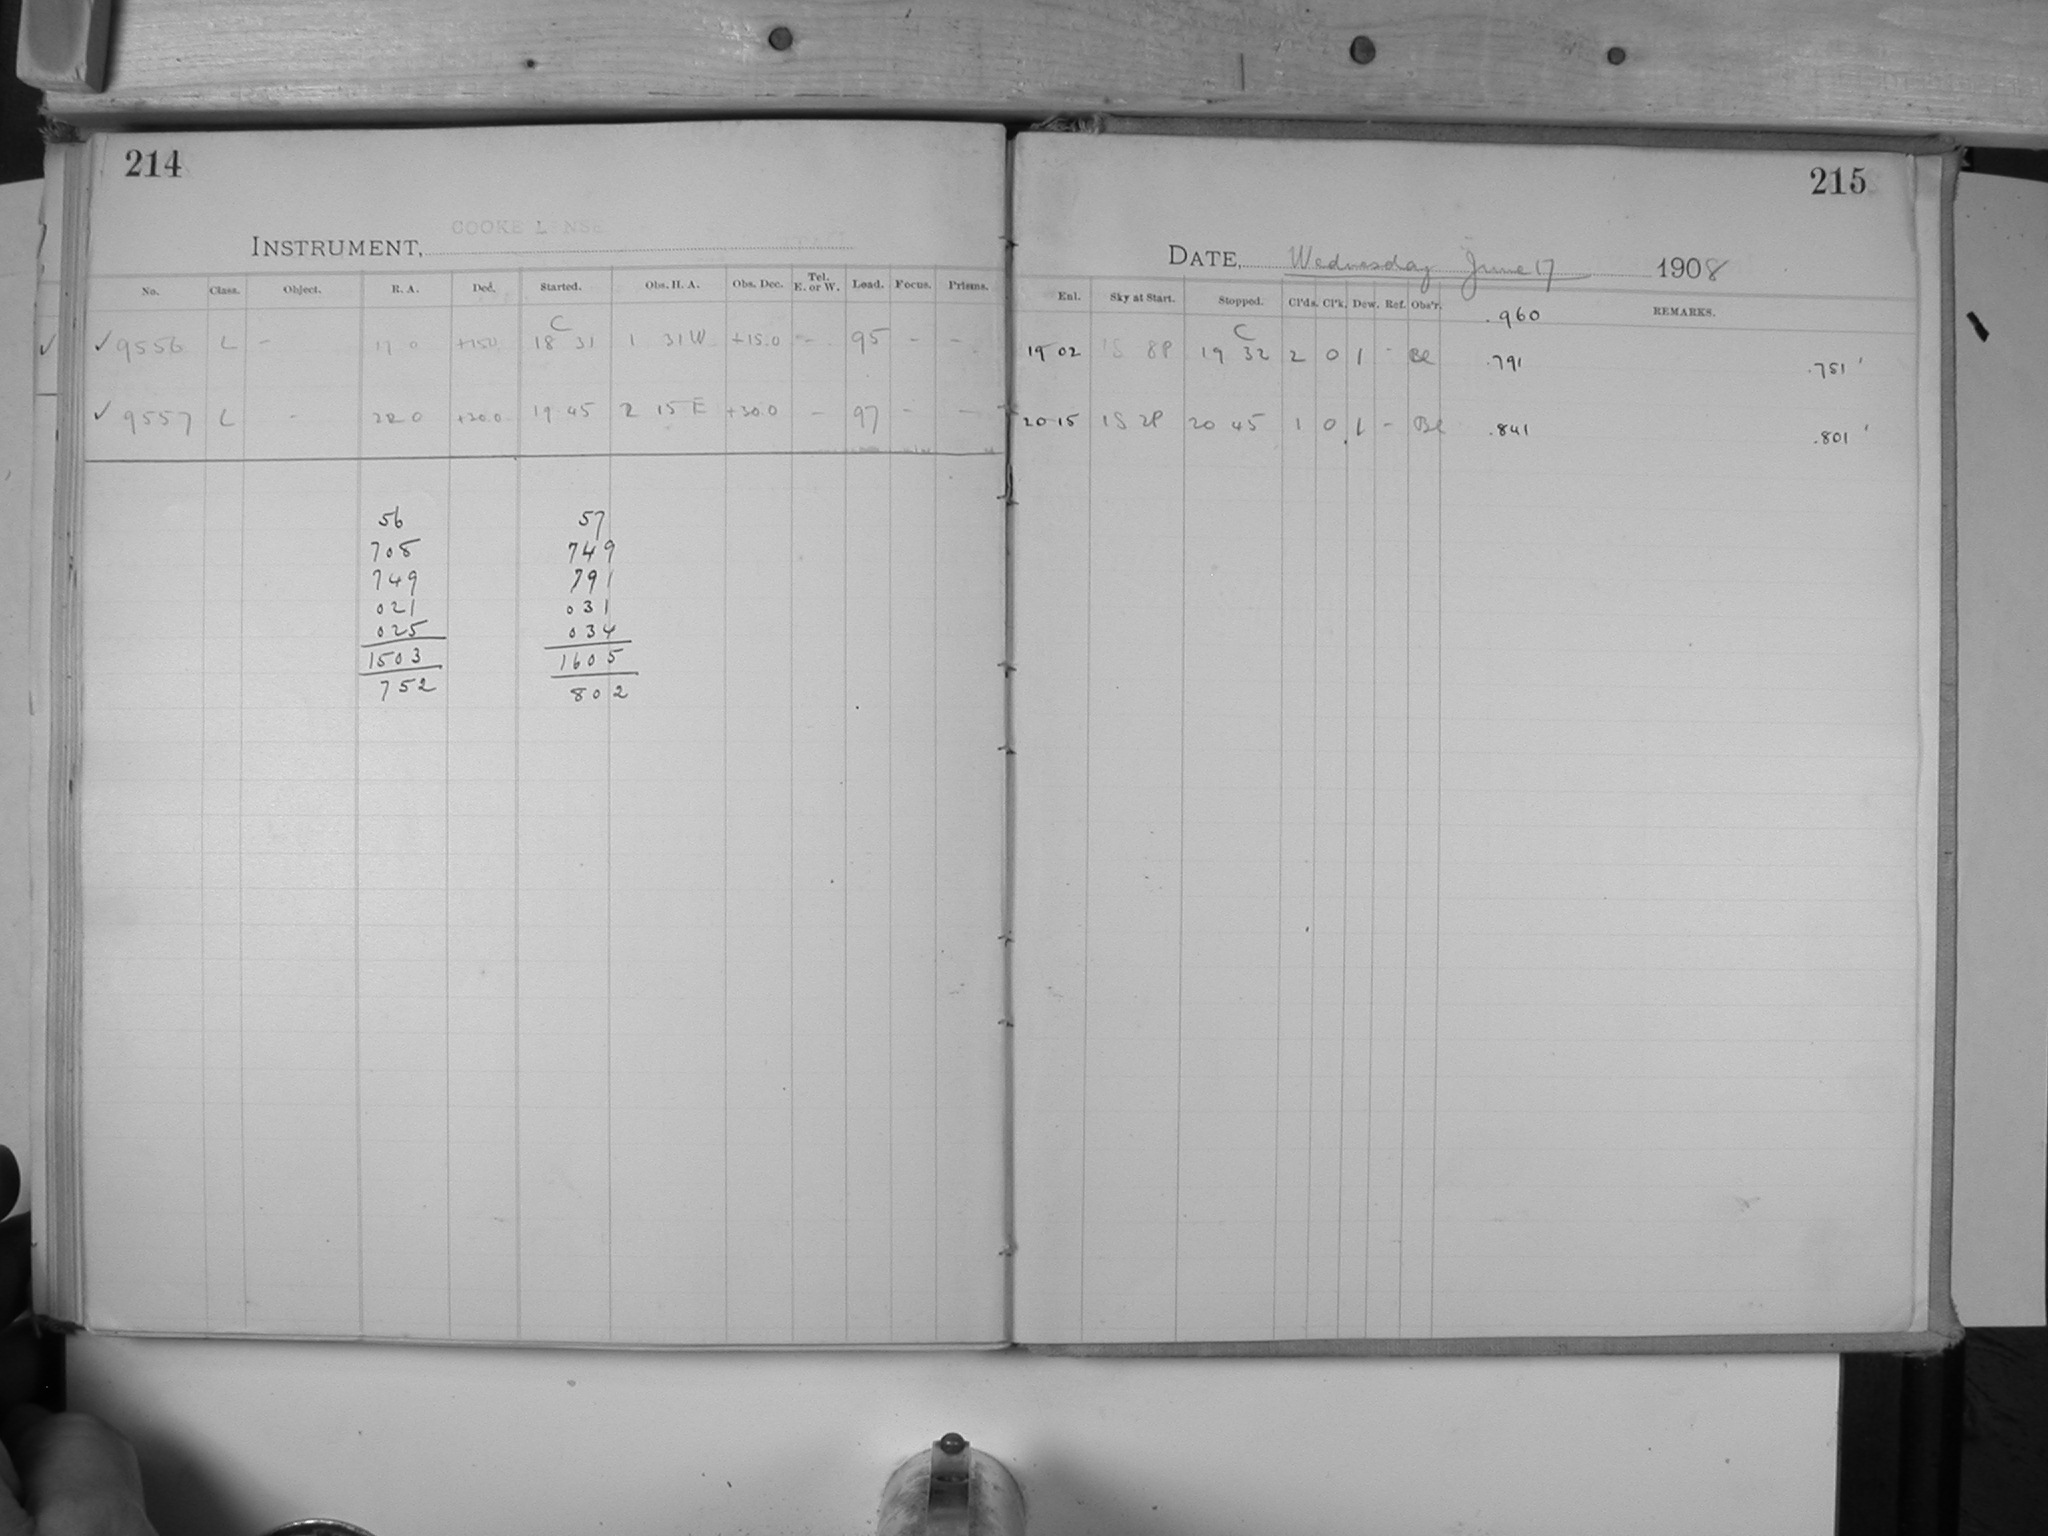 214
COOKE LENSE
INSTRUMENT,
No. Class. Object. R. A. Dec. Started. Obs. H. A. Obs. Dec. Tel. E. or W. Load. Focus. Prisms.
✓ ✓ 9556 L - 17 0 +15.0 C 18 31 1 31 W +15.0 - 95 - -
✓ 9557 L - 22 0 +30.0 19 45 2 15 E +30.0 - 97 - -
56 57
708 749
749 791
021 031
025 034
1503 1605
752 802
215
DATE, Wednesday June 17 1908
Enl. Sky at Start. Stopped. Cl'ds. Cl'k. Dew. Ref. Obs'r. .960 REMARKS.
19 02 1S 8P C 19 32 2 0 1 - Bl .791 .751'
20 15 1S 2P 20 45 1 0 1 - Bl .841 .801'